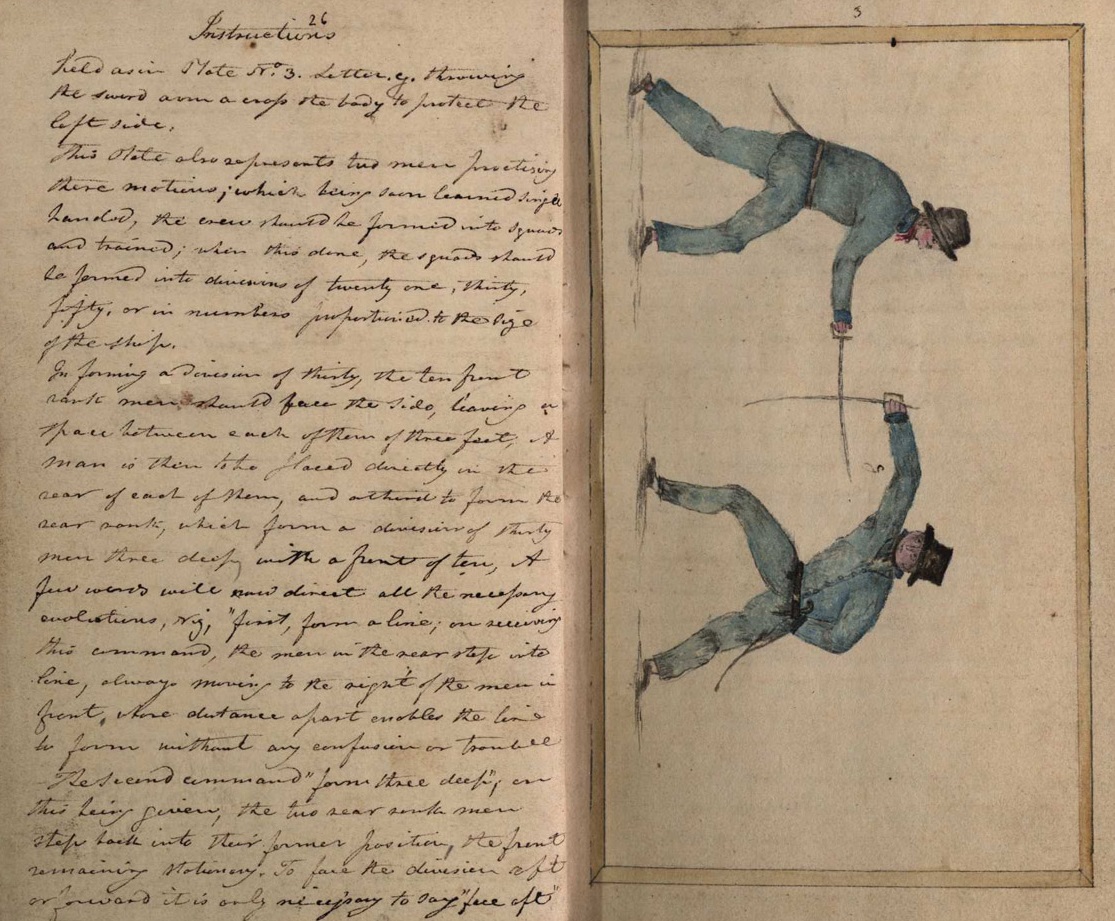 26
Instructions
held as in Plate No. 3. Letter. g. throwing
the sword arm a cross the body to protect the
left side.
This Plate also represents two men practising
these motions; which being soon learned single
handed, the crew should be formed into squads
and trained; when this done, the squads should
be formed into divisions of twenty one, thirty,
fifty, or in numbers proportioned to the size
of the ship.
In forming a division of thirty, the ten front
rank men should face the side, leaving a
space between each of them of three feet; A
man is then to be placed directly in the
rear of each of them, and a third to form the
rear rank, which form a division of thirty
men three deep, with a front of ten, A
few words will now direct all the necessary
evolutions, viz, "first, form a line; on receiving
this command, the men in the rear step into
line, always moving to the right of the men in
front, whose distance apart enables the line
to form without any confusion or trouble
The second command "form three deep"; on
this being given, the two rear rank men
step back into their former position, the front
remaining stationary. To face the division aft
or forward it is only necessary to say "face aft"
3
g